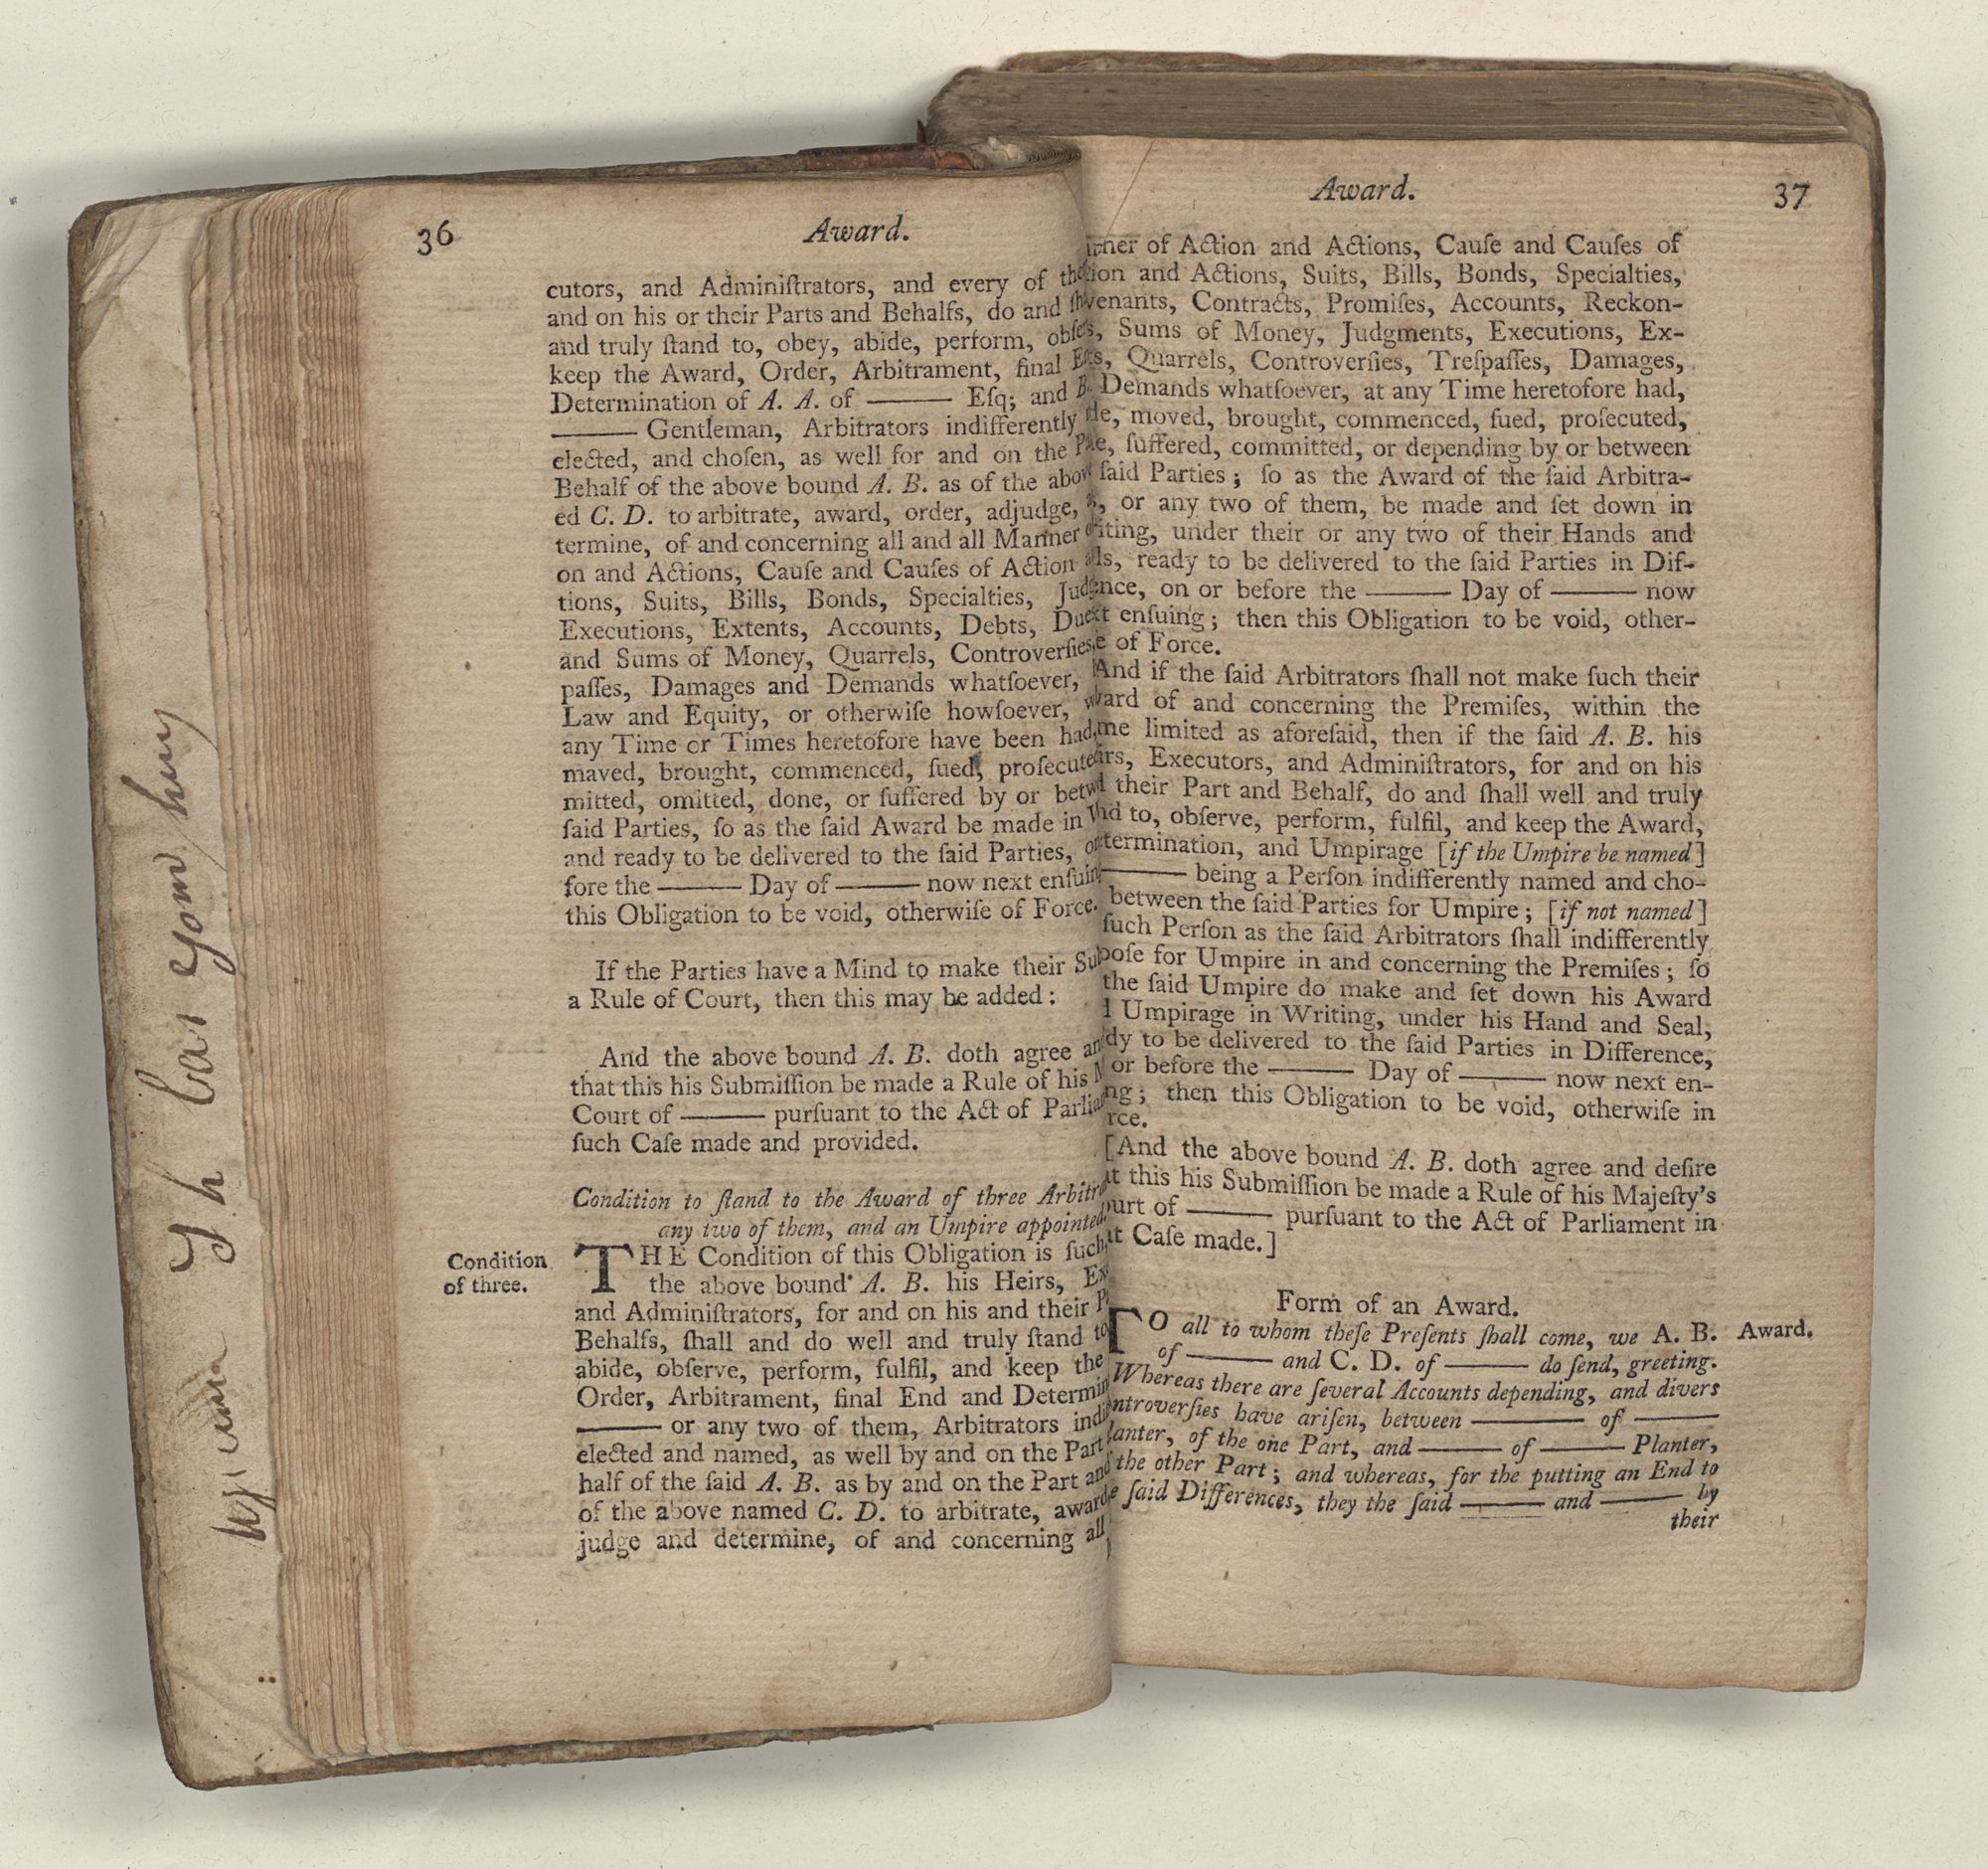 36
Award.
cutors, and Adminiſtrators, and every of
and on his or their Parts and Behalfs, do and
and truly ſtand to, obey, abide, perform,
keep the Award, Order, Arbitrament, final
Determination of A. A. of ——— Eſq; and B.
——— Gentleman, Arbitrators indifferently
elected, and choſen, as well for and on the
Behalf of the above bound A. B. as of the
ed C. D. to arbitrate, award, order, adjudge,
termine, of and concerning all and all Manner
on and Actions, Cauſe and Cauſes of Action
tions, Suits, Bills, Bonds, Specialties,
Executions, Extents, Accounts, Debts,
and Sums of Money, Quarrels, Controverſies,
paſſes, Damages and Demands whatſoever,
Law and Equity, or otherwiſe howſoever,
any Time or Times heretofore have been had,
maved, brought, commenced, ſued, proſecute
mitted, omitted, done, or ſuffered by or
ſaid Parties, ſo as the ſaid Award be made in
and ready to be delivered to the ſaid Parties,
fore the ——— Day of ——— now next
this Obligation to be void, otherwiſe of Force.
If the Parties have a Mind to make their
a Rule of Court, then this may be added:
And the above bound A. B. doth agree
that this his Submiſſion be made a Rule of his
Court of ——— purſuant to the Act of
ſuch Caſe made and provided.
Condition to ſtand to the Award of three
any two of them, and an Umpire appointed
Condition
of three.
THE Condition of this Obligation is ſuch,
the above bound A. B. his Heirs,
and Adminiſtrators, for and on his and their
Behalfs, ſhall and do well and truly ſtand to
abide, obſerve, perform, fulfil, and keep the
Order, Arbitrament, final End and
——— or any two of them, Arbitrators
elected and named, as well by and on the Part
half of the ſaid A. B. as by and on the Part and
of the above named C. D. to arbitrate, award
judge and determine, of and concerning all
Award.
37
of Action and Actions, Cauſe and Cauſes of
and Actions, Suits, Bills, Bonds, Specialties,
venants, Contracts, Promiſes, Accounts, Reckon-
Sums of Money, Judgments, Executions, Ex-
Quarrels, Controverſies, Treſpaſſes, Damages,
Demands whatſoever, at any Time heretofore had,
moved, brought, commenced, ſued, proſecuted,
ſuffered, committed, or depending by or between
ſaid Parties; ſo as the Award of the ſaid Arbitra-
or any two of them, be made and ſet down in
iting, under their or any two of their Hands and
ready to be delivered to the ſaid Parties in Dif-
on or before the ——— Day of ——— now
enſuing; then this Obligation to be void, other-
of Force.
And if the ſaid Arbitrators ſhall not make ſuch their
ward of and concerning the Premiſes, within the
me limited as aforeſaid, then if the ſaid A. B. his
Executors, and Adminiſtrators, for and on his
their Part and Behalf, do and ſhall well and truly
to, obſerve, perform, fulfil, and keep the Award,
termination, and Umpirage [if the Umpire be named]
——— being a Perſon indifferently named and cho-
between the ſaid Parties for Umpire; [if not named]
ſuch Perſon as the ſaid Arbitrators ſhall indifferently
poſe for Umpire in and concerning the Premiſes; ſo
the ſaid Umpire do make and ſet down his Award
Umpirage in Writing, under his Hand and Seal,
dy to be delivered to the ſaid Parties in Difference,
or before the ——— Day of ——— now next en-
ng; then this Obligation to be void, otherwiſe in
rce.
[And the above bound A. B. doth agree and deſire
this his Submiſſion be made a Rule of his Majeſty's
urt of ——— purſuant to the Act of Parliament in
Caſe made.]
Form of an Award.
TO all to whom theſe Preſents ſhall come, we A. B.
Award.
of ——— and C. D. of ——— do ſend, greeting.
Whereas there are ſeveral Accounts depending, and divers
ntroverſies have ariſen, between ——— of ———
lanter, of the one Part, and ——— of ——— Planter,
the other Part; and whereas, for the putting an End to
ſaid Differences, they the ſaid ——— and ——— by
their